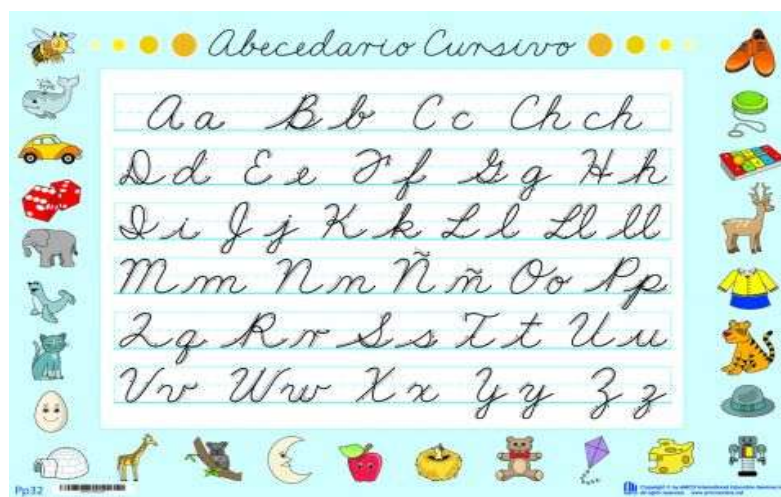 Abecedario Cursivo
Aa Bb Cc Ch ch
Dd Ee Ff Gg Hh
Ii Jj Kk Ll Ll ll
Mm Nn Ññ Oo Pp
Qq Rr Ss Tt Uu
Vv Ww Xx Yy Zz
Pp32